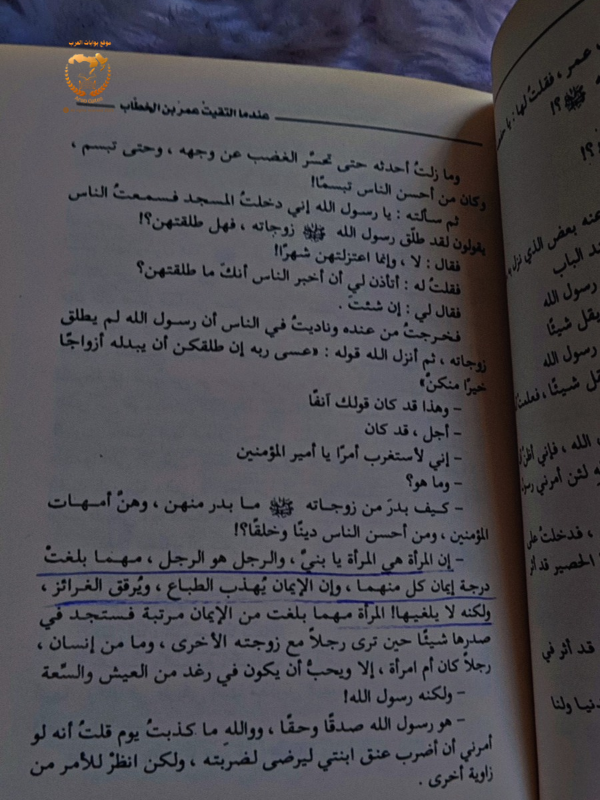 موقع بوابات العرب
عندما التقيتُ عمرَ بن الخطّاب
وما زلتُ أحدثه حتى تحسَّر الغضب عن وجهه ، وحتى تبسم ،
وكان من أحسن الناس تبسمًا!
ثم سألته : يا رسول الله إني دخلتُ المسجد فسمعتُ الناس
يقولون لقد طلّق رسول الله ﷺ زوجاته ، فهل طلقتهن؟!
فقال : لا ، وإنما اعتزلتهن شهرًا!
فقلتُ له : أتأذن لي أن أخبر الناس أنكَ ما طلقتهن؟
فقال لي : إن شئتَ .
فخرجتُ من عنده وناديتُ في الناس أن رسول الله لم يطلق
زوجاته ، ثم أنزل الله قوله : «عسى ربه إن طلقكن أن يبدله أزواجًا
خيرًا منكنّ»
- وهذا قد كان قولك آنفًا
- أجل ، قد كان
- إني لأستغرب أمرًا يا أمير المؤمنين
- وما هو؟
- كيف بدرَ من زوجاته ﷺ ما بدر منهن ، وهنّ أمهات
المؤمنين ، ومن أحسن الناس دينًا وخلقًا؟!
- إن المرأة هي المرأة يا بنيّ ، والرجل هو الرجل ، مهما بلغتْ
درجة إيمان كل منهما ، وإن الإيمان يُهذب الطباع ، ويُرقق الغرائز ،
ولكنه لا يلغيها! المرأة مهما بلغت من الإيمان مرتبة فستجد في
صدرها شيئًا حين ترى رجلاً مع زوجته الأخرى ، وما من إنسان ،
رجلاً كان أم امرأة ، إلا ويحبُّ أن يكون في رغد من العيش والسَّعة
- ولكنه رسول الله!
- هو رسول الله صدقًا وحقًا ، ووالله ما كذبتُ يوم قلتُ أنه لو
أمرني أن أضرب عنق ابنتي ليرضى لضربته ، ولكن انظرْ للأمر من
زاوية أخرى .
عمر ، فقلتُ لها : يا
ﷺ ؟!
عنه بعض الذي نزل
عند الباب
رسول الله
يقل شيئًا
رسول الله
يقل شيئًا ، فعلمت
الله ، فإني أظن
لئن أمرني رسول
، فدخلتُ على
الحصير قد أثر
قد أثر في
دنيا ولنا